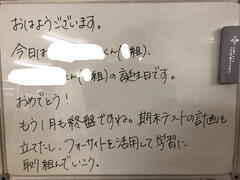 おはようございます。
今日は くん( 組)、
くん( 組)の誕生日です。
おめでとう!
もう1月も終盤ですね。期末テストの計画も
立たたし、フォーサイトを活用して学習に
取り組んでいこう。